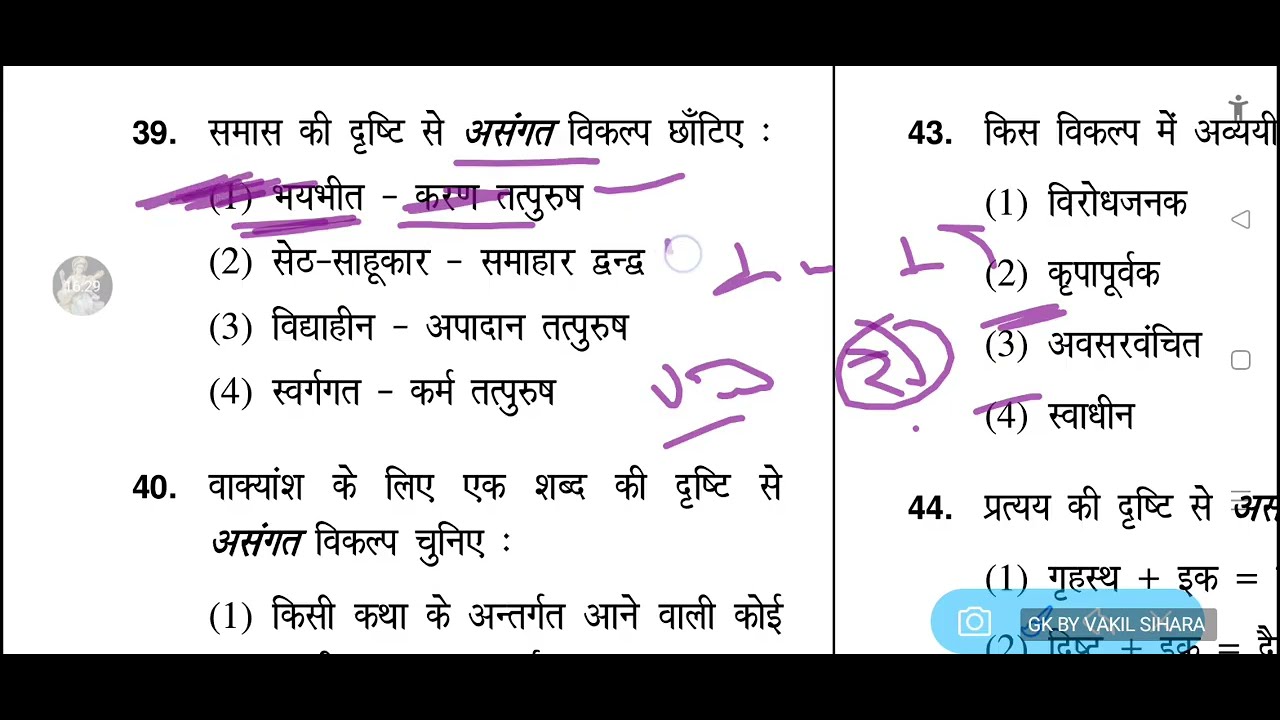 39. समास की दृष्टि से असंगत विकल्प छाँटिए :
(1) भयभीत - करण तत्पुरुष
(2) सेठ-साहूकार - समाहार द्वन्द्व
(3) विद्याहीन - अपादान तत्पुरुष
(4) स्वर्गगत - कर्म तत्पुरुष
40. वाक्यांश के लिए एक शब्द की दृष्टि से
असंगत विकल्प चुनिए :
(1) किसी कथा के अन्तर्गत आने वाली कोई
43. किस विकल्प में
(1) विरोधजनक
(2) कृपापूर्वक
(3) अवसरवंचित
(4) स्वाधीन
44. प्रत्यय की दृष्टि से
(1) गृहस्थ + इक =
(2) + इक =
16:29
GK BY VAKIL SIHARA